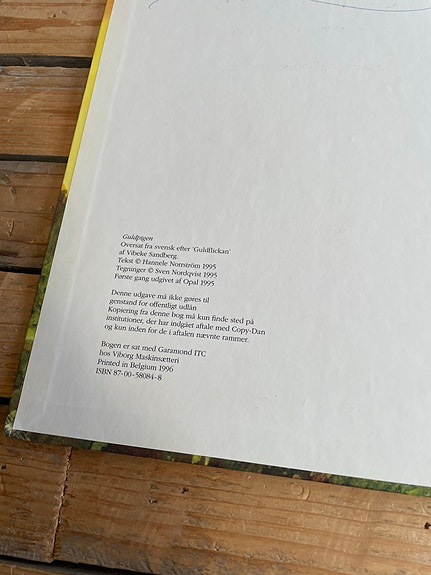 Guldpigen
Oversat fra svensk efter 'Guldflickan'
af Vibeke Sandberg.
Tekst © Hannele Norrström 1995
Tegninger © Sven Nordqvist 1995
Første gang udgivet af Opal 1995
Denne udgave må ikke gøres til
genstand for offentligt udlån
Kopiering fra denne bog må kun finde sted på
institutioner, der har indgået aftale med Copy-Dan
og kun inden for de i aftalen nævnte rammer.
Bogen er sat med Garamond ITC
hos Viborg Maskinsætteri
Printed in Belgium 1996
ISBN 87-00-58084-8